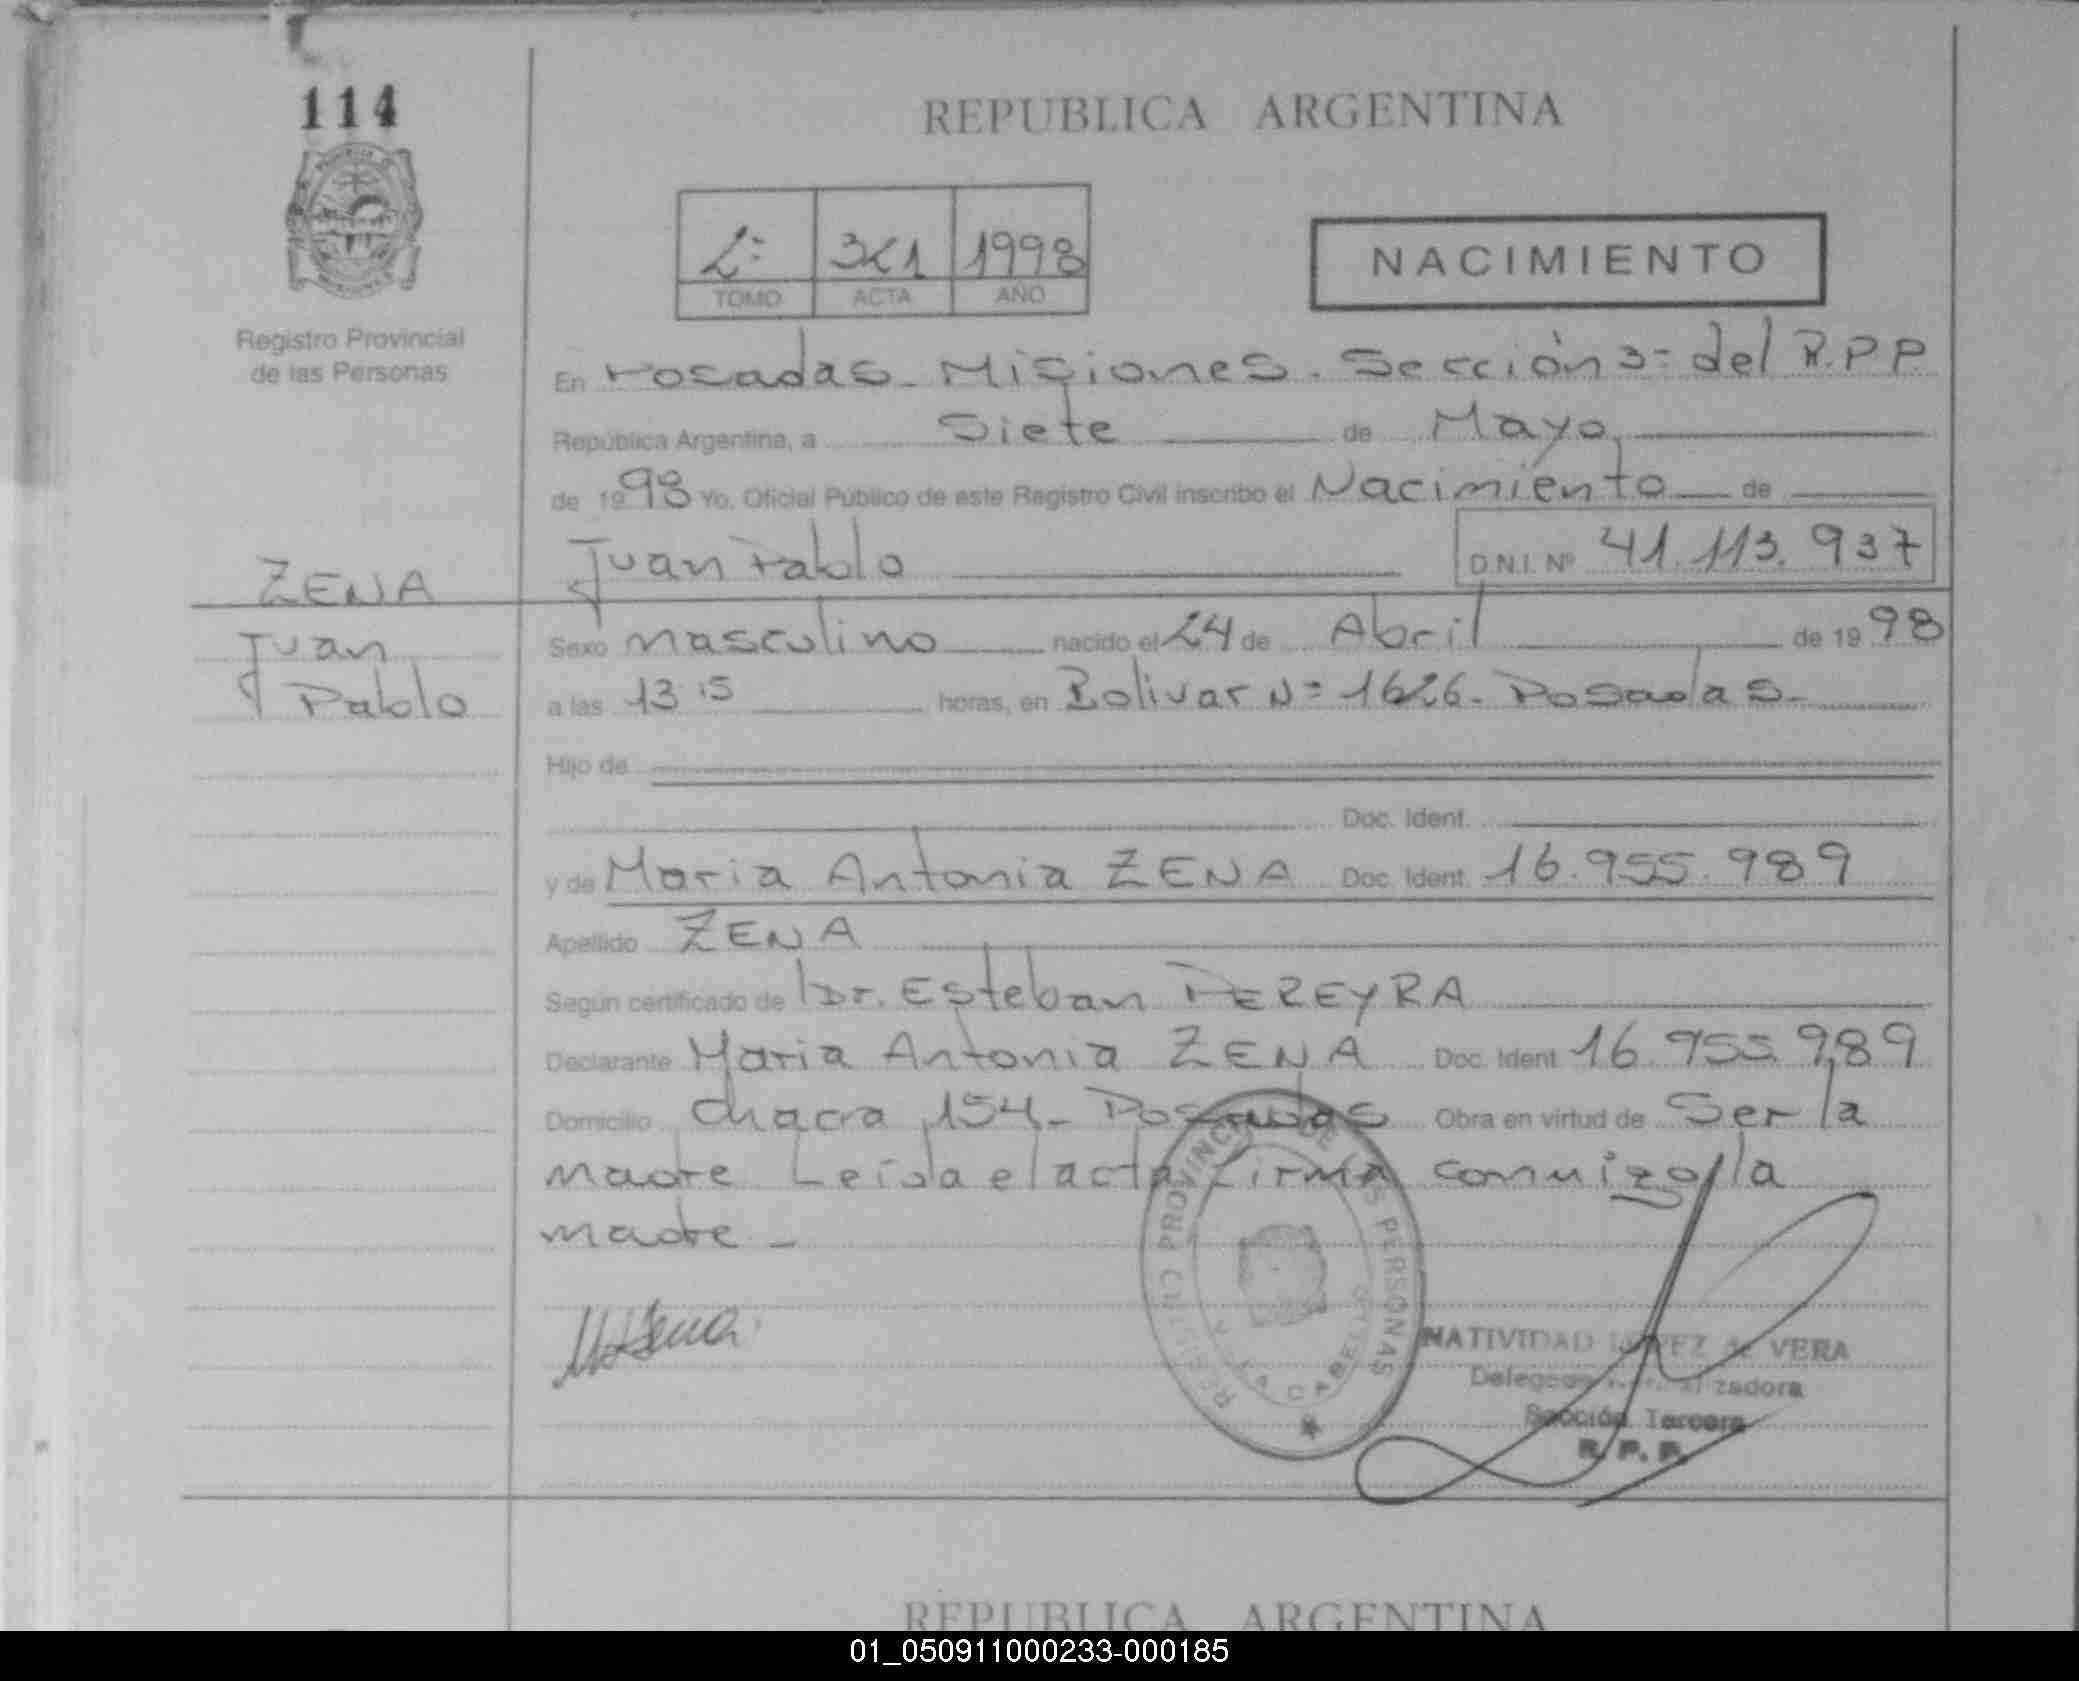 114
REPUBLICA ARGENTINA
2º 321 1998
TOMO ACTA AÑO
NACIMIENTO
Registro Provincial
de las Personas
En Posadas - Misiones. Sección 3º del R.P.P.
República Argentina, a Siete de Mayo
de 1998 Yo, Oficial Público de este Registro Civil inscribo el Nacimiento de
Juan Pablo D.N.I. Nº 41.113.937
ZENA
Juan
Pablo
Sexo masculino nacido el 24 de Abril de 1998
a las 13:15 horas, en Bolivar Nº 1626 - Posadas -
Hijo de
Doc. Ident.
y de Maria Antonia ZENA Doc. Ident. 16.955.989
Apellido ZENA
Según certificado de Dr. Esteban PEREYRA
Declarante Maria Antonia ZENA Doc. Ident 16.955.989
Domicilio chacra 154 - Posadas Obra en virtud de Ser la
madre Leida el acta firma conmigo la
madre -
REGISTRO PROVINCIAL DE LAS PERSONAS
NATIVIDAD LOPEZ de VERA
Delegada zadora
Sección Tercera
R. P. P.
REPUBLICA ARGENTINA
01_050911000233-000185